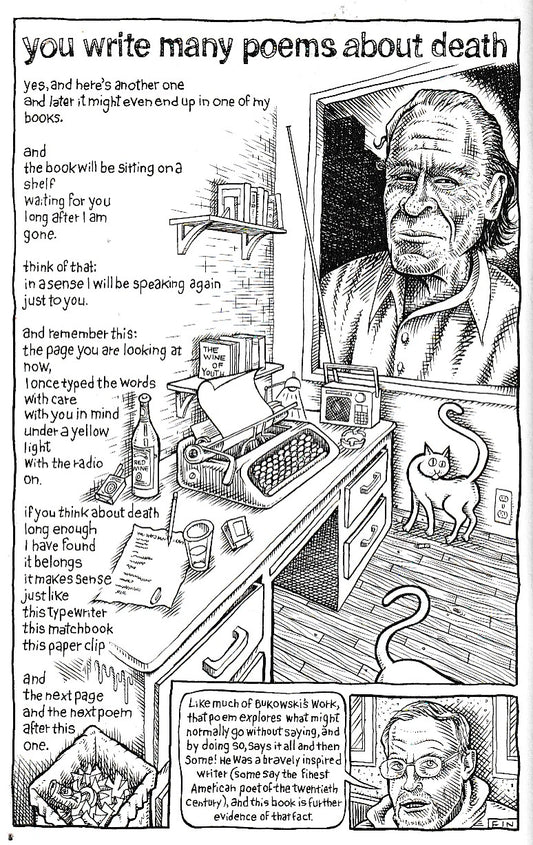 you write many poems about death
yes, and here's another one
and later it might even end up in one of my
books.
and
the book will be sitting on a
shelf
waiting for you
long after I am
gone.
think of that:
in a sense I will be speaking again
just to you.
and remember this:
the page you are looking at
now,
I once typed the words
with care
with you in mind
under a yellow
light
with the radio
on.
if you think about death
long enough
I have found
it belongs
it makes sense
just like
this typewriter
this matchbook
this paper clip
and
the next page
and the next poem
after this
one.
THE
WINE
OF
YOUTH
RED
WINE
Like much of Bukowski's work,
that poem explores what might
normally go without saying, and
by doing so, says it all and then
some! He was a bravely inspired
writer (some say the finest
American poet of the twentieth
century), and this book is further
evidence of that fact.
FIN